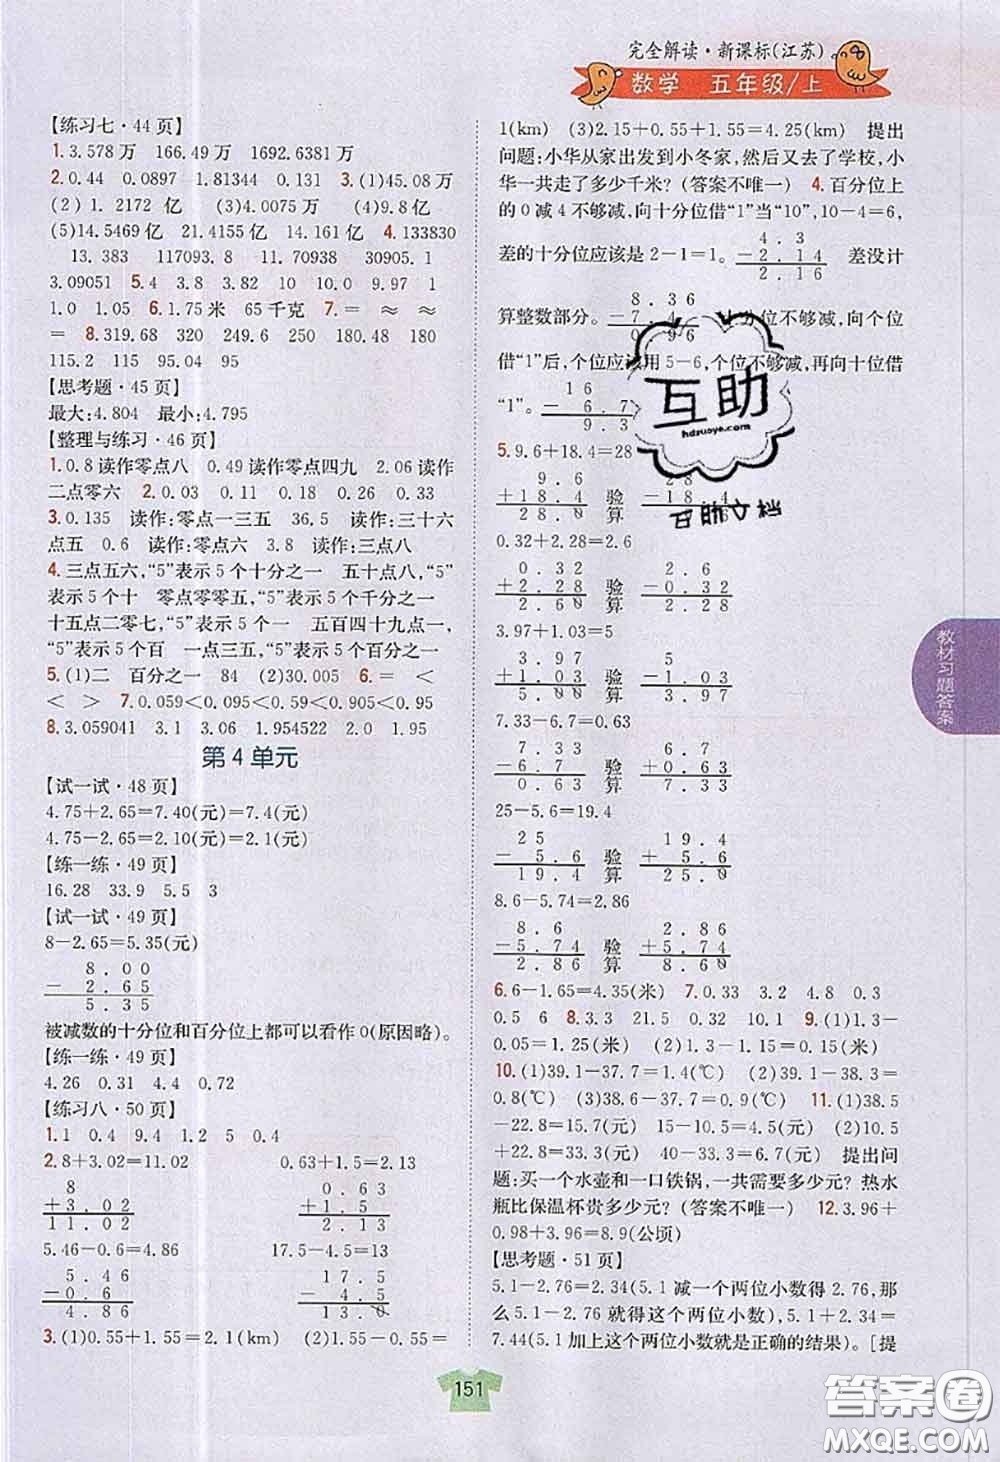 完全解读·新课标(江苏)
数学 五年级/上
【练习七·44页】
1.3.578万 166.49万 1692.6381万
2.0.44 0.0897 1.81344 0.131 3.(1)45.08万
(2)1.2172亿 (3)4.0075万 (4)9.8亿
(5)14.5469亿 21.4155亿 14.161亿 4.133830
13.383 117093.8 11.70938 30905.1
3.09051 5.4 3.8 3.82 10 10.0 9.97 1
1.0 1.05 6.1.75米 65千克 7.= ≈ ≈
= 8.319.68 320 249.6 250 180.48 180
115.2 115 95.04 95
【思考题·45页】
最大:4.804 最小:4.795
【整理与练习·46页】
1.0.8读作零点八 0.49读作零点四九 2.06读作
二点零六 2.0.03 0.11 0.18 0.26 0.33
3.0.135 读作:零点一三五 36.5 读作:三十六
点五 0.6 读作:零点六 3.8 读作:三点八
4.三点五六,“5”表示5个十分之一 五十点八,“5”
表示5个十 零点零零五,“5”表示5个千分之一
十五点二零七,“5”表示5个一 五百四十九点一,
“5”表示5个百 一点三五,“5”表示5个百分之一
5.(1)二 百分之一 84 (2)30.005 6.= <
< > 7.0.059<0.095<0.59<0.905<0.95
8.3.059041 3.1 3.06 1.954522 2.0 1.95
第4单元
【试一试·48页】
4.75+2.65=7.40(元)=7.4(元)
4.75-2.65=2.10(元)=2.1(元)
【练一练·49页】
16.28 33.9 5.5 3
【试一试·49页】
8-2.65=5.35(元)
8.00
- 2.65
5.35
被减数的十分位和百分位上都可以看作0(原因略)。
【练一练·49页】
4.26 0.31 4.4 0.72
【练习八·50页】
1.1 0.4 9.4 1.2 5 0.4
2.8+3.02=11.02 0.63+1.5=2.13
8 0.63
+3.02 +1.5
11.02 2.13
5.46-0.6=4.86 17.5-4.5=13
5.46 17.5
-0.6 - 4.5
4.86 13.0
3.(1)0.55+1.55=2.1(km) (2)1.55-0.55=
1(km) (3)2.15+0.55+1.55=4.25(km) 提出
问题:小华从家出发到小冬家,然后又去了学校,小
华一共走了多少千米?(答案不唯一) 4.百分位上
的0减4不够减,向十分位借“1”当“10”,10-4=6,
4.3
差的十分位应该是2-1=1。 -2.14 差没计
2.16
8.36
算整数部分。 -7.4 十分位不够减,向个位
0.96
借“1”后,个位应该用5-6,个位不够减,再向十位借
16
“1”。 - 6.7
9.3
5.9.6+18.4=28
9.6 28
+18.4 验 -18.4
28.0 算
0.32+2.28=2.6
0.32 2.6
+2.28 验 -0.32
2.60 算 2.28
3.97+1.03=5
3.97 5
+1.03 验 -1.03
5.00 算 3.97
7.33-6.7=0.63
7.33 6.7
-6.7 验 +0.63
0.63 算 7.33
25-5.6=19.4
25 19.4
- 5.6 验 + 5.6
19.4 算 25.0
8.6-5.74=2.86
8.6 2.86
-5.74 验 +5.74
2.86 算 8.60
6.6-1.65=4.35(米) 7.0.33 3.2 4.8 0.3
0.5 6 8.3.3 21.5 0.32 10.1 9.(1)1.3-
0.05=1.25(米) (2)1.3-0.05-0.05=1.2(米)
10.(1)39.1-37.7=1.4(℃) (2)39.1-38.3=
0.8(℃) (3)38.6-37.7=0.9(℃) 11.(1)38.5
-22.8=15.7(元) 15-10.5=4.5(元) (2)10.5
+22.8=33.3(元) 40-33.3=6.7(元) 提出问
题:买一个水壶和一口铁锅,一共需要多少元? 热水
瓶比保温杯贵多少元?(答案不唯一) 12.3.96+
0.98+3.96=8.9(公顷)
【思考题·51页】
5.1-2.76=2.34(5.1减一个两位小数得2.76,那
么5.1-2.76就得这个两位小数),5.1+2.34=
7.44(5.1加上这个两位小数就是正确的结果)。[提
教材习题答案
151
互助
hdzuoye.com
互助文档
答案圈
MXQE.COM